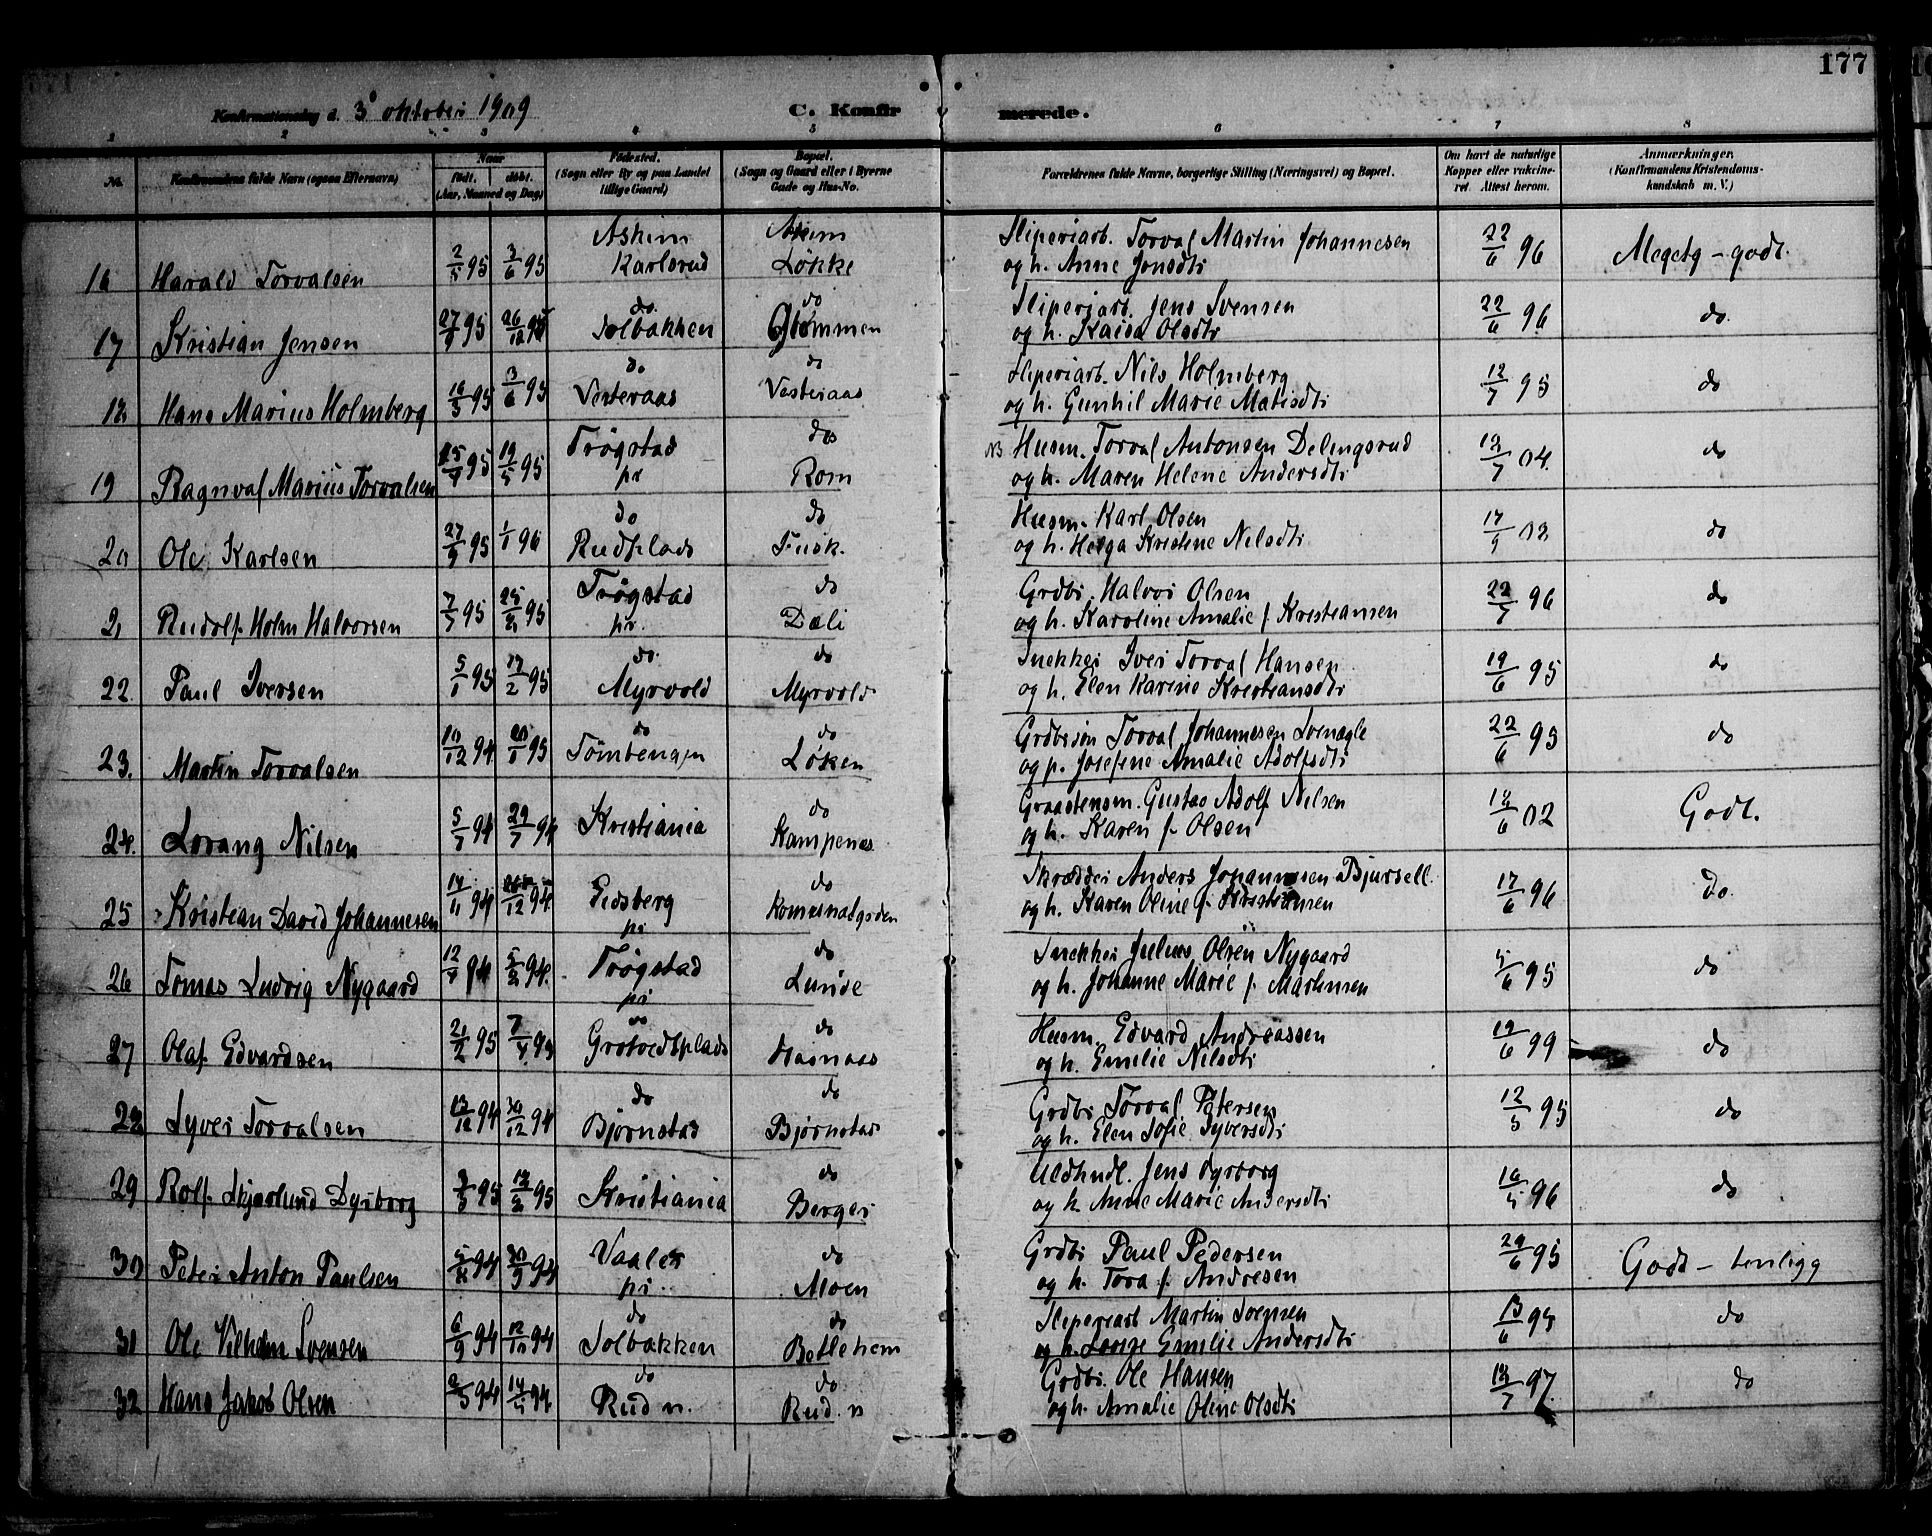 177
Konfirmationsdag d. 3 oktober 1909 C. Konfirmerede.
1 2 3 4 5 6 7 8
No. Konfirmandens fulde Navn (ogsaa Efternavn) Naar født. døbt. (Aar, Maaned og Dag) Fødested. (Sogn eller By og paa Landet tillige Gaard) Bopæl. (Sogn og Gaard eller i Byerne Gade og Hus-No. Forældrenes fulde Navne, borgerlige Stilling (Næringsvei) og Bopæl. Om havt de naturlige Kopper eller vakcineret. Attest herom. Anmærkninger. (Konfirmandens Kristendomskundskab m. V.)
Askim Askim Sliperiarb. Torval Martin Johannesen
16 Harald Torvalsen 2/5 95 3/6 95 Karlsrud Løkke og h. Anne Jonsdtr 22/6 96 Megetg - godt.
do. do Sliperiarb. Jens Svensen
17 Kristian Jensen 27/9 95 26/12 95 Solbakken Glommen og h. Kaisa Olsdtr 22/6 96 do.
do do Sliperiarb. Nils Holmberg
18 Hans Marius Holmberg 16/3 95 3/6 95 Vesteraas Vesteraas og h. Gunhil Marie Matisdtr 12/7 95 do
Trøgstad do NB Husm. Torval Antonsen Delingsrud
19 Ragnval Marius Torvalsen 25/4 95 19/5 95 pr Rom og h. Maren Helene Andersdtr 04. do
do do Husm. Karl Olsen
20 Ole Karlsen 27/9 95 1/1 96 Rudplads Fusk. og h. Helga Kristine Nilsdtr do
Trøgstad do Grdbr. Halvor Olsen
21 Rudolf Holm Halvorsen 95 95 pr. Dæli og h. Karoline Amalie f. Kristiansen 22/7 96 do
do. do Snekker Iver Torval Hansen
22. Paul Iversen 5/1 95 17/2 95 Myrvold Myrvold og h. Elen Karine Kristiansdtr 19/6 95 do
do do Grdbrsøn Torval Johannesen Svenagle
23. Martin Torvalsen 10/12 94 20/1 95 Tombengen Løken og p. Josefine Amalie Adolfsdtr 22/6 95 do
do Graastensm. Gustav Adolf Nilsen
24. Lorang Nilsen 5/7 94 29/7 94 Kristiania Kampenes og h. Karen f. Olsen 02 Godt.
do Skrædder Anders Johannesen Bjursell.
25 Kristian David Johannesen 14/11 94 94 Eidsberg pr og h. Karen Oline f. Kristiansen 17/6 96 Do.
do Snekker Julius Olsen Nygaard
26 Tomas Ludvig Nygaard 94 94. Trøgstad pr Lunde og h. Johanne Marie f. Martinsen 5/6 95 do
do do Husm. Edvard Andreassen
27 Olaf Edvardsen 95 95 Grøtvedtplads og h. Emilie Nilsdtr 99 do
do do Grdbr Torval Petersen
28 Syver Torvalsen 94 30/12 94 Bjørnstad Bjørnstad og h. Elen Sofie Syversdtr 12/5 95 do
do Uldhndl. Jens Dyrborg
29 Rolf Skjørlund Dyrborg 95 95 Kristiania Berger og h Anne Marie Andersdtr 96 do
Vaaler do Grdbr Paul Pedersen
30 Peter Anton Paulsen 94 94 pr. Moen og h. Tora f. Andresen 95 Godt - temligg
do do Sliperiarb Martin Svensen
31 Ole Vilhelm Svensen 6/9 94 94 Solbakken Betlehem og h. Lovise Emilie Andersdtr 13/6 95 do
do do Grdbr. Ole Hansen
32 Hans Jakob Olsen 94 94 Rud n. Rud. n og h. Amalie Oline Olsdtr 97. do